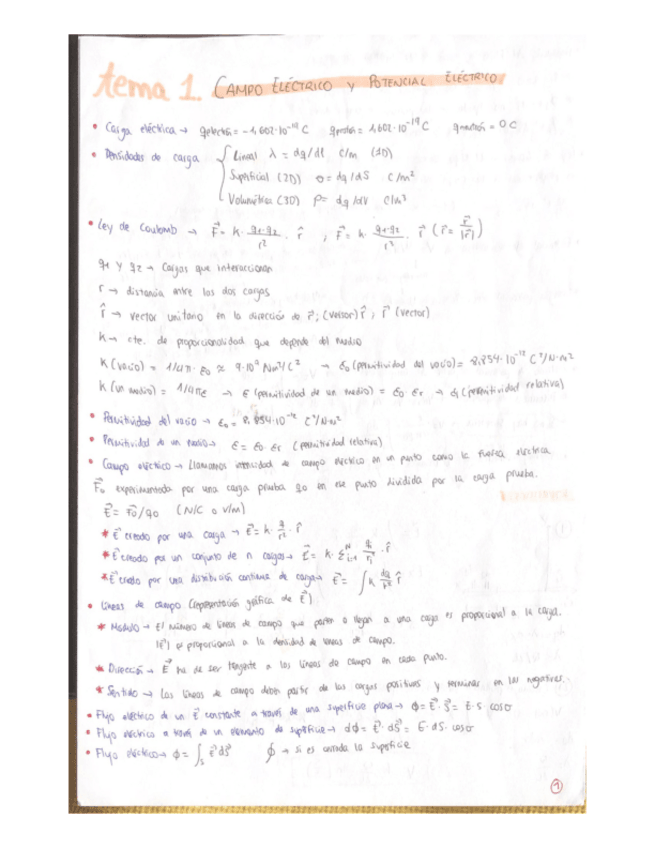 tema 1. CAMPO ELÉCTRICO Y POTENCIAL ELÉCTRICO
• Carga eléctrica → qelectrón = -1,602·10⁻¹⁹ C qprotón = 1,602·10⁻¹⁹ C qneutrón = 0 C
• Densidades de carga { Lineal λ = dq/dl C/m (1D)
Superficial (2D) σ = dq/dS C/m²
Volumétrica (3D) ρ = dq/dV C/m³
• Ley de Coulomb → F⃗ = K · q1·q2/r² · r̂ , F⃗ = K · q1·q2/r³ · r⃗ (r̂ = r⃗/|r⃗|)
q1 y q2 → Cargas que interaccionan
r → distancia entre las dos cargas
r̂ → vector unitario en la dirección de r⃗; (versor) r̂ ; r⃗ (vector)
K → cte. de proporcionalidad que depende del medio
K (vacío) = 1/4π·ε0 ≈ 9·10⁹ Nm²/C² → ε0 (permitividad del vacío) = 8,854·10⁻¹² C²/N·m²
K (un medio) = 1/4πε → ε (permitividad de un medio) = ε0·εr → εr (permitividad relativa)
• Permitividad del vacío → ε0 = 8,854·10⁻¹² C²/N·m²
• Permitividad de un medio → ε = ε0·εr (permitividad relativa)
• Campo eléctrico → Llamamos intensidad de campo eléctrico en un punto como la fuerza eléctrica
F⃗0 experimentada por una carga prueba q0 en ese punto dividida por la carga prueba.
E⃗ = F⃗0/q0 (N/C o V/m)
* E⃗ creado por una carga → E⃗ = K · q/r² · r̂
* E⃗ creado por un conjunto de n cargas → E⃗ = K · Σᴺi=1 qi/ri² · r̂
* E⃗ creado por una distribución continua de carga → E⃗ = ∫ K dq/r² r̂
• Líneas de campo (representación gráfica de E⃗)
* Módulo → El número de líneas de campo que parten o llegan a una carga es proporcional a la carga.
|E⃗| es proporcional a la densidad de líneas de campo.
* Dirección → E⃗ ha de ser tangente a las líneas de campo en cada punto.
* Sentido → Las líneas de campo deben partir de las cargas positivas y terminar en las negativas.
• Flujo eléctrico de un E⃗ constante a través de una superficie plana → ϕ = E⃗·S⃗ = E·S·cosσ
• Flujo eléctrico a través de un elemento de superficie → dϕ = E⃗·dS⃗ = E·dS·cosσ
• Flujo eléctrico → ϕ = ∫s E⃗ dS⃗ ∮ → si es cerrada la superficie
1